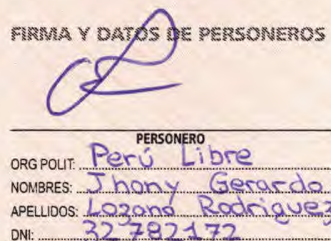 FIRMA Y DATOS DE PERSONEROS
PERSONERO
ORG POLIT: Perú Libre
NOMBRES: Jhony Gerardo
APELLIDOS: Lozano Rodriguez
DNI: 32782172